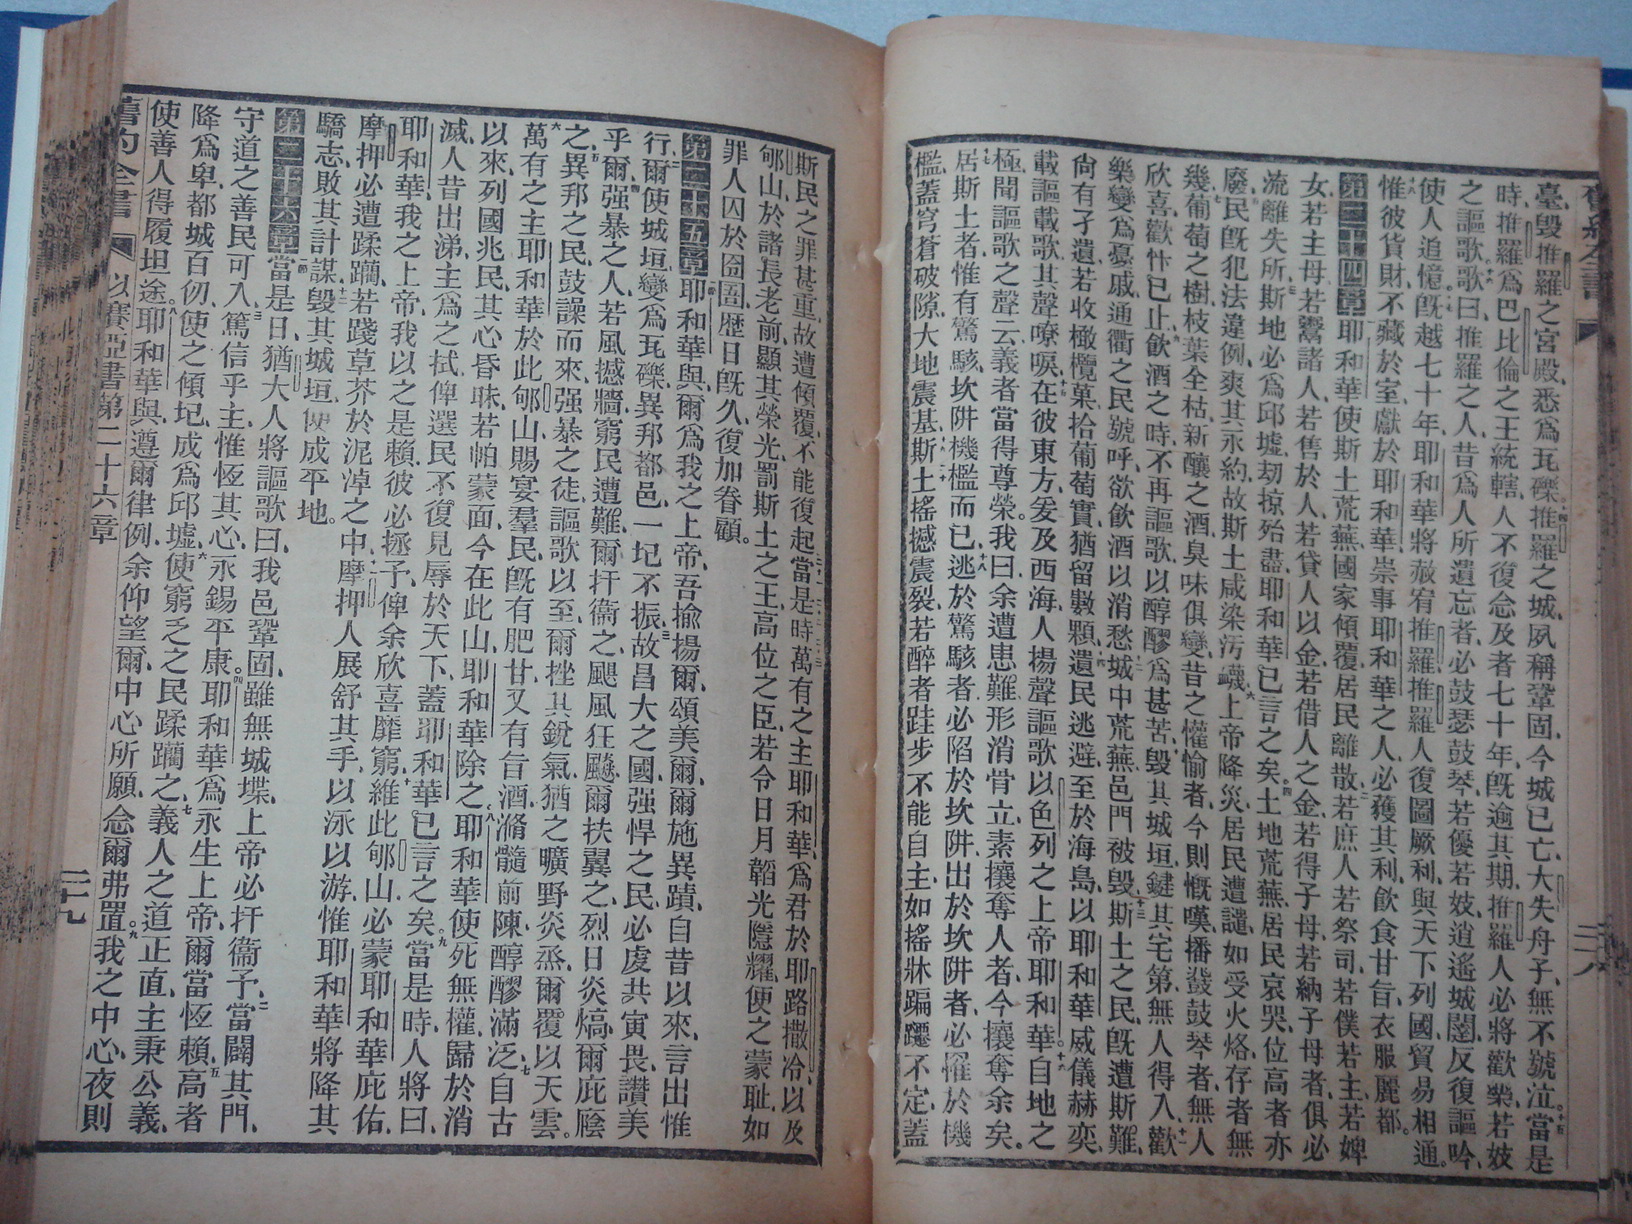 舊約全書
二八
臺毀推羅之宮殿、悉爲瓦礫。十四推羅之城、夙稱鞏固、今城已亡、大失舟子、無不號泣。十五當是
時、推羅爲巴比倫之王統轄、人不復念及者七十年、旣逾其期、推羅人必將歡樂、若妓
之謳歌、十六歌曰、推羅之人、昔爲人所遺忘者、必鼓瑟鼓琴、若優若妓、逍遙城闉、反復謳吟、
使人追憶。十七旣越七十年、耶和華將赦宥推羅、推羅人復圖厥利、與天下列國貿易相通。
十八惟彼貨財、不藏於室、獻於耶和華、崇事耶和華之人、必獲其利、飲食甘旨、衣服麗都。
第二十四章一耶和華使斯土荒蕪、國家傾覆、居民離散、二若庶人、若祭司、若僕、若主、若婢
女、若主母、若鬻諸人、若售於人、若貸人以金、若借人之金、若得子母、若納子母者、俱必
流離失所、三斯地必爲邱墟、劫掠殆盡、耶和華已言之矣。四土地荒蕪、居民哀哭、位高者亦
廢、五民旣犯法違例、爽其永約、故斯土咸染污衊、六上帝降災、居民遭譴、如受火烙、存者無
幾、七葡萄之樹、枝葉全枯、新釀之酒、臭味俱變、昔之懽愉者、今則慨嘆、八播鼗鼓琴者、無人
欣喜、歡忭已止、九飲酒之時、不再謳歌、以醇醪爲甚苦、十毀其城垣、鍵其宅第、無人得入、十一歡
樂變爲憂戚、通衢之民號呼、欲飲酒以消愁、十二城中荒蕪、邑門被毀、十三斯土之民、旣遭斯難、
尙有孑遺、若收橄欖菓、拾葡萄實、猶留數顆、十四遺民逃避、至於海島、以耶和華威儀赫奕、
載謳載歌、其聲嘹唳、十五在彼東方、爰及西海、人揚聲謳歌、以色列之上帝耶和華。十六自地之
極、聞謳歌之聲、云義者當得尊榮、我曰、余遭患難、形消骨立、素攘奪人者、今攘奪余矣。
十七居斯土者、惟有驚駭、坎阱機檻而已、十八逃於驚駭者、必陷於坎阱、出於坎阱者、必罹於機
檻、蓋穹蒼破隙、大地震基、十九斯土搖撼震裂、二十若醉者跬步、不能自主、如搖牀蹁躚不定、蓋
斯民之罪甚重、故遭傾覆、不能復起、二十一當是時、萬有之主耶和華、爲君於耶路撒冷、以及
郇山、於諸長老前、顯其榮光、罰斯土之王、高位之臣、若令日月韜光隱耀、使之蒙恥、如
罪人囚於囹圄、歷日旣久、復加眷顧。
第二十五章一耶和華與、爾爲我之上帝、吾揄揚爾、頌美爾、爾施異蹟、自昔以來、言出惟
行、二爾使城垣變爲瓦礫、異邦都邑、一圮不振、三故昌大之國、强悍之民、必虔共寅畏、讚美
乎爾、四强暴之人、若風撼牆、窮民遭難、爾扞衞之、颶風狂飈、爾扶翼之、烈日炎熇、爾庇廕
之、五異邦之民、鼓譟而來、强暴之徒、謳歌以至、爾挫其銳氣、猶之曠野炎烝、爾覆以天雲。
六萬有之主耶和華、於此郇山、賜宴羣民、旣有肥甘、又有旨酒、滫髓前陳、醇醪滿泛、七自古
以來、列國兆民、其心昏昧、若帕蒙面、今在此山、耶和華除之、八耶和華使死無權、歸於消
滅、人昔出涕、主爲之拭、俾選民不復見辱於天下、蓋耶和華已言之矣。九當是時人將曰、
耶和華、我之上帝、我以之是賴、彼必拯予、俾余欣喜靡窮、十維此郇山、必蒙耶和華庇佑、
摩押必遭蹂躪、若踐草芥於泥淖之中、十一摩押人展舒其手、以泳以游、惟耶和華將降其
驕志、敗其計謀、十二毀其城垣、使成平地。
第二十六章一當是日、猶大人將謳歌曰、我邑鞏固、雖無城堞、上帝必扞衞予、二當闢其門、
守道之善民可入、三篤信乎主、惟恆其心、永錫平康。四耶和華爲永生上帝、爾當恆賴、五高者
降爲卑、都城百仞、使之傾圮、成爲邱墟、六使窮乏之民蹂躪之、七義人之道正直、主秉公義、
使善人得履坦途。八耶和華與、遵爾律例、余仰望爾、中心所願、念爾弗置。九我之中心、夜則
舊約全書
以賽亞書第二十六章
二十九